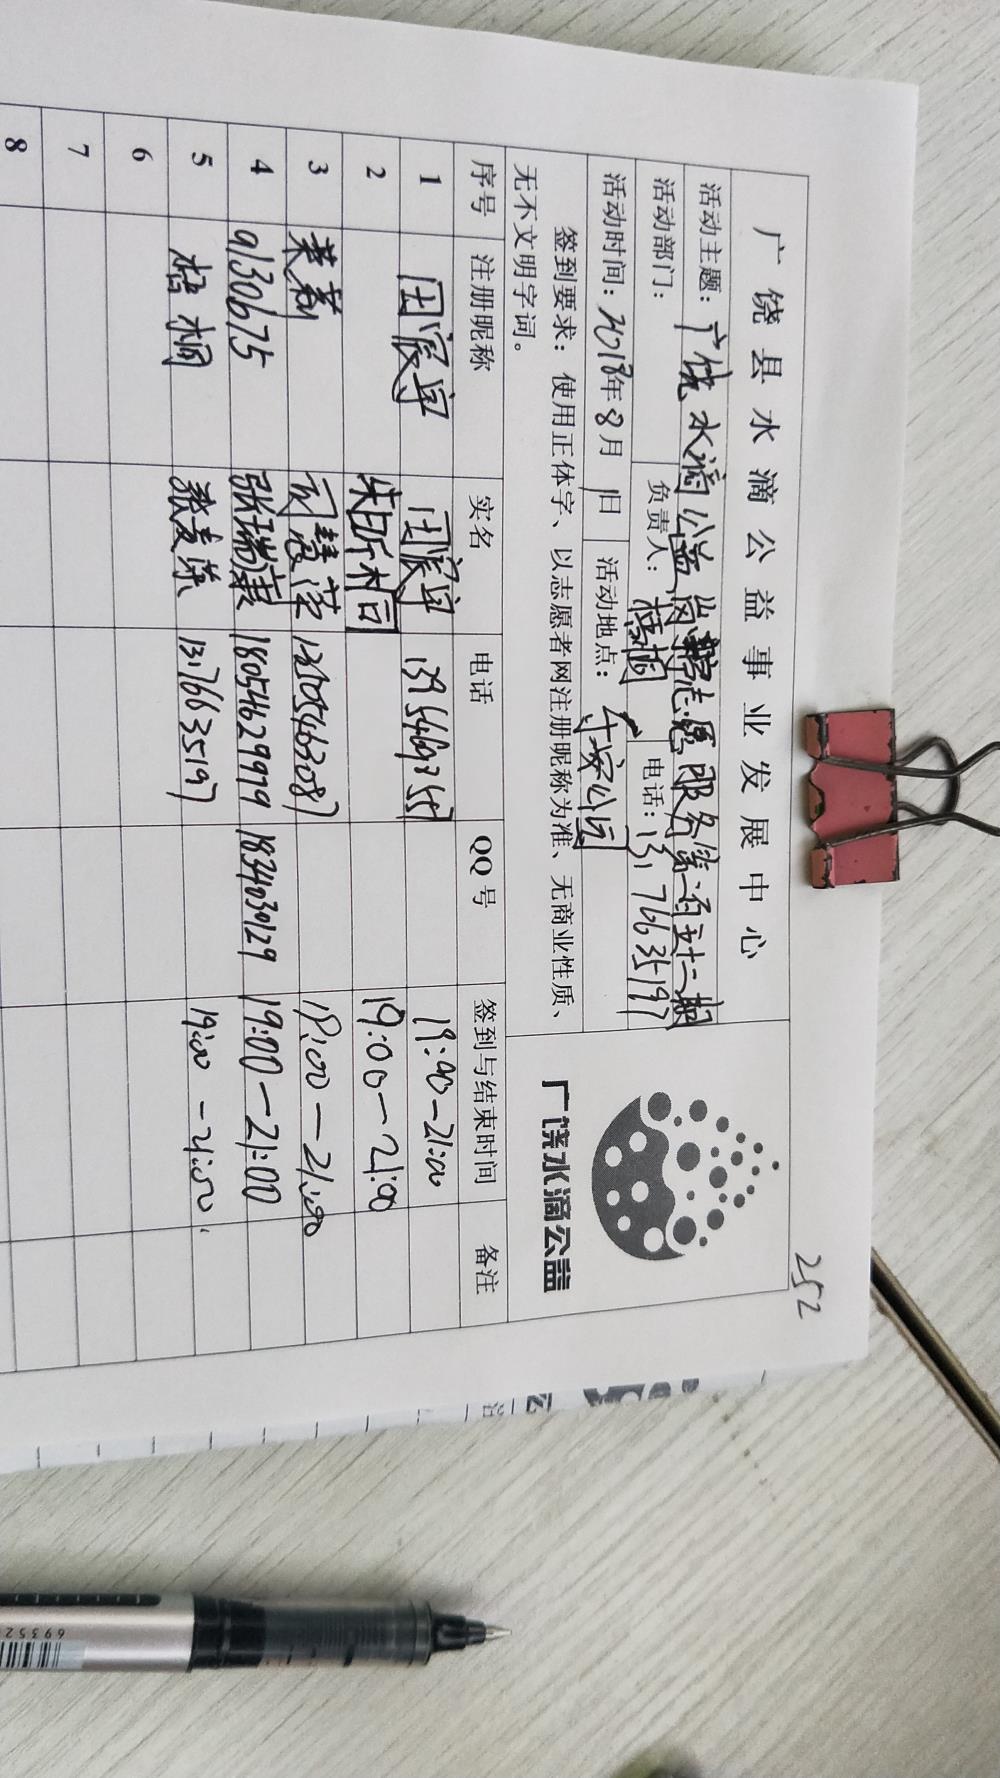 252
广饶县水滴公益事业发展中心
活动主题：广饶水滴公益 志愿服务第一百五十二期
活动部门： 负责人：梧桐 电话：13176635197
活动时间：2018年8月1日 活动地点：乐安公园
签到要求：使用正体字、以志愿者网注册昵称为准、无商业性质、
无不文明字词。
广饶水滴公益
序号 注册昵称 实名 电话 QQ号 签到与结束时间 备注
1 田宸宇 田宸宇 19:00—21:00
2 19:00—21:00
3 13505463087 19:00—21:00
4 9130675 张瑞康 18054629979 1834030129 19:00—21:00
5 梧桐 13176635197 19:00—21:00.
6
7
8
69352